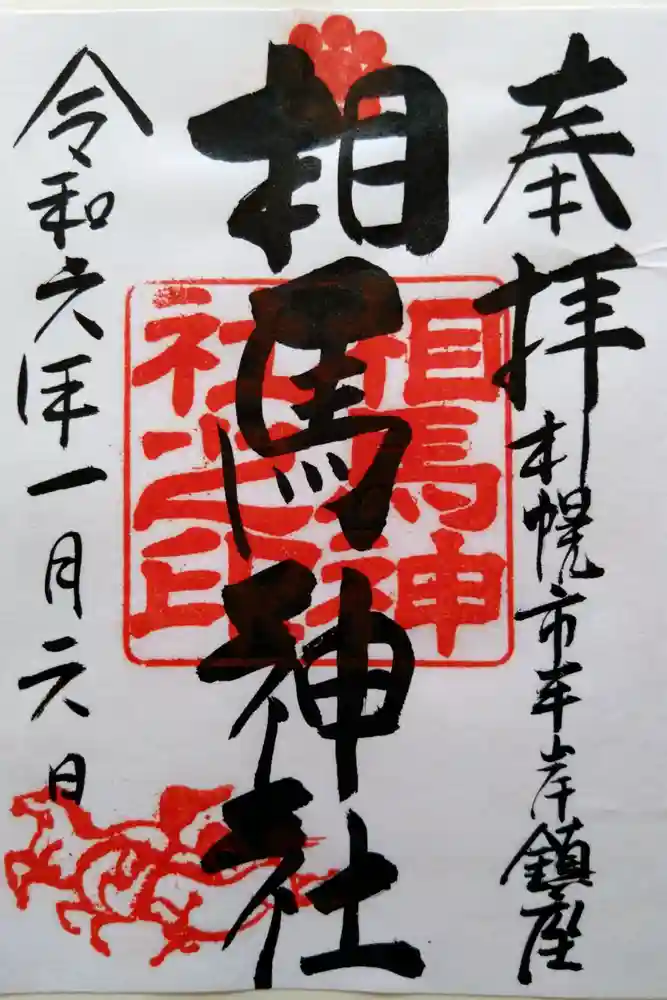 奉拝
札幌市平岸鎮座
相馬神社
相馬神社之印
令和六年一月六日